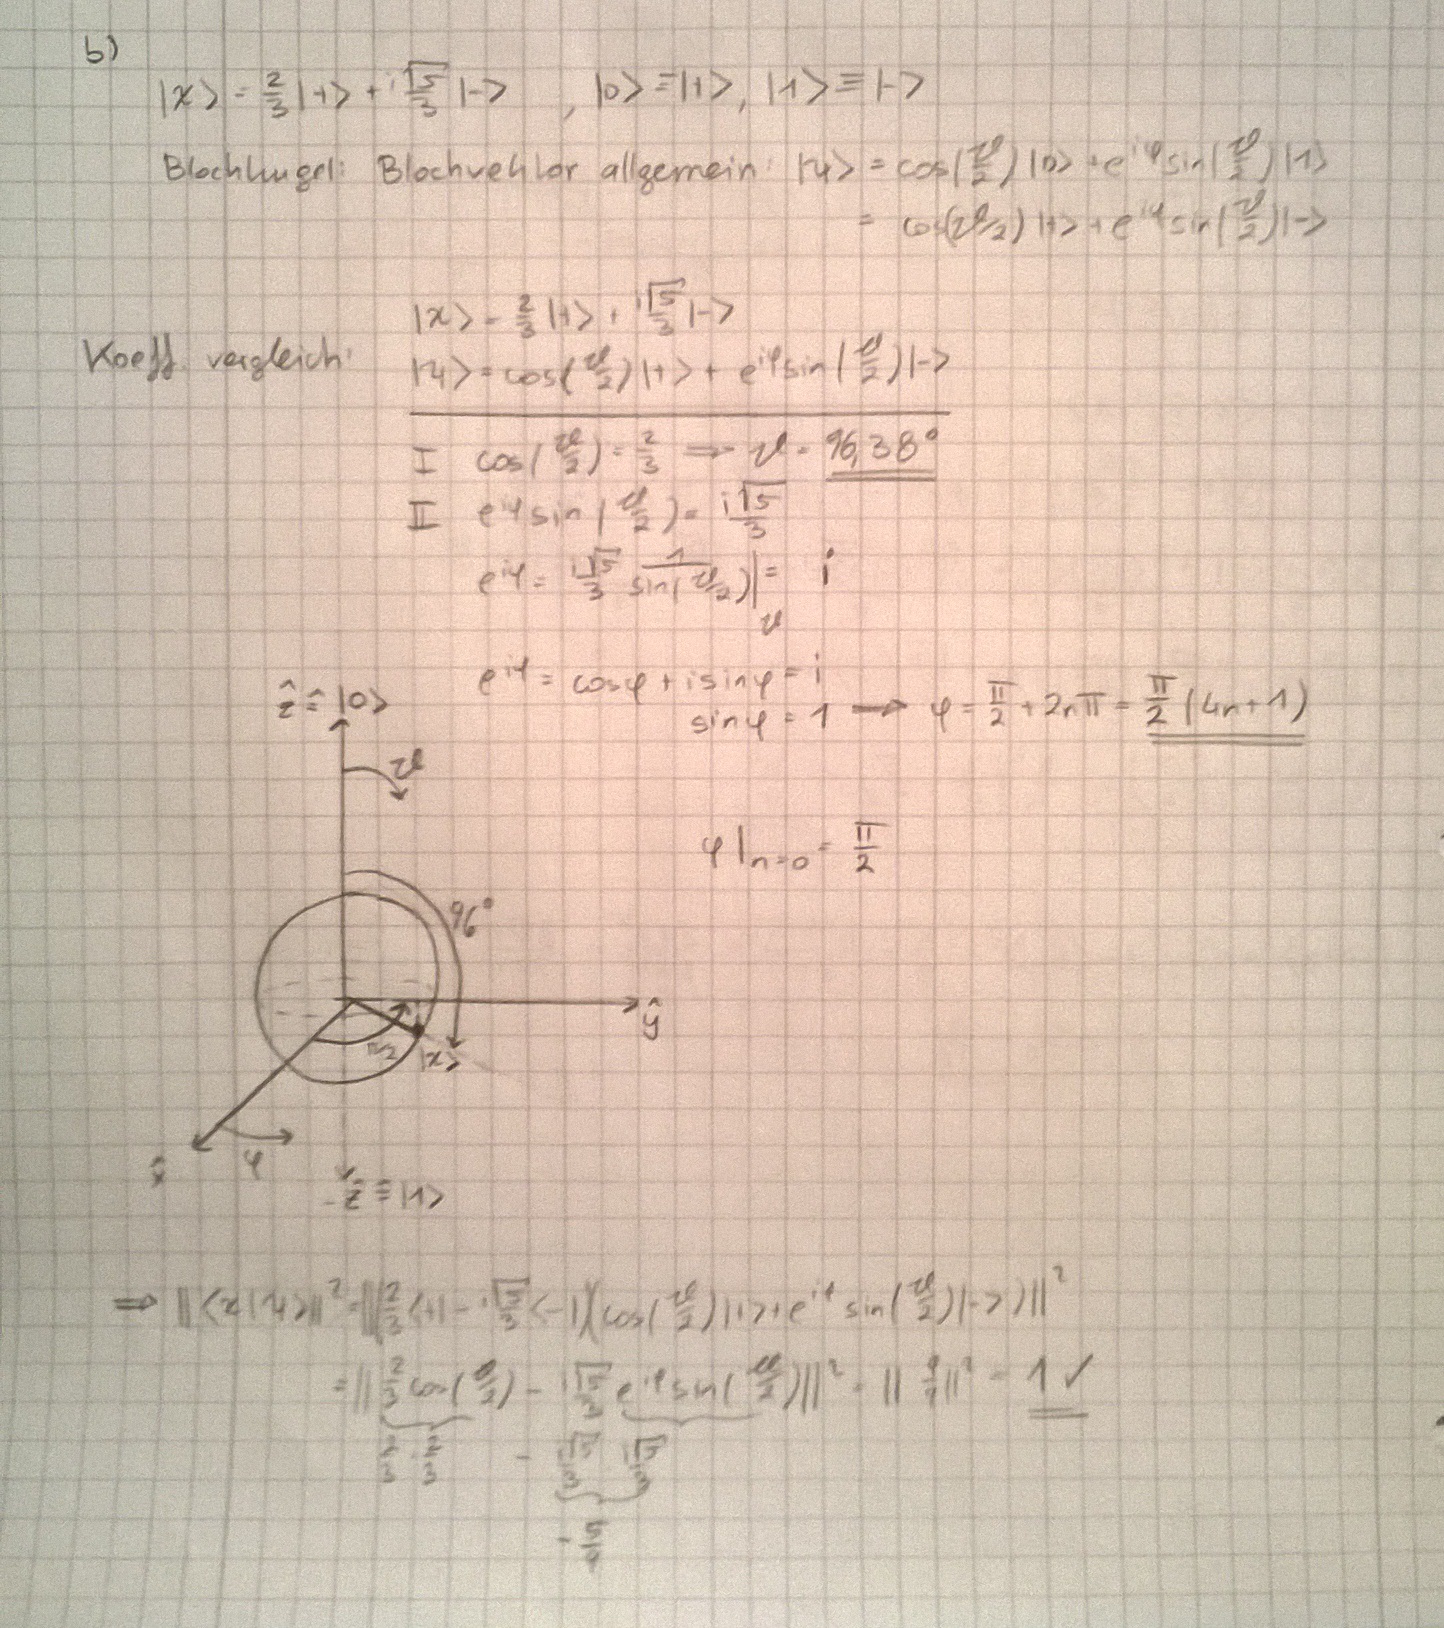 b)
|χ> = 2/3 |+> + i√5/3 |-> , |0> ≡ |+>, |1> ≡ |->
Blochkugel: Blochvektor allgemein: |ψ> = cos(ϑ/2) |0> + e^{iφ} sin(ϑ/2) |1>
= cos(ϑ/2) |+> + e^{iφ} sin(ϑ/2) |->
|χ> = 2/3 |+> + i√5/3 |->
Koeff. vergleich:
|ψ> = cos(ϑ/2) |+> + e^{iφ} sin(ϑ/2) |->
I cos(ϑ/2) = 2/3 ⟹ ϑ = 96,38°
II e^{iφ} sin(ϑ/2) = i√5/3
e^{iφ} = i√5/3 1/sin(ϑ/2) |_ϑ = i
e^{iφ} = cosφ + i sinφ = i
sinφ = 1 → φ = π/2 + 2nπ = π/2 (4n+1)
φ|_{n=0} = π/2
ẑ ≙ |0>
ϑ
96°
ŷ
π/2
|χ>
φ
x̂
-ẑ ≙ |1>
⟹ ||<χ|ψ>||² = ||(2/3 <+| - i√5/3 <-|)(cos(ϑ/2) |+> + e^{iφ} sin(ϑ/2) |->)||²
= ||2/3 cos(ϑ/2) - i√5/3 e^{iφ} sin(ϑ/2)||² = ||9/9||² = 1 ✓
2/3 2/3 - i√5/3 i√5/3
- 5/9